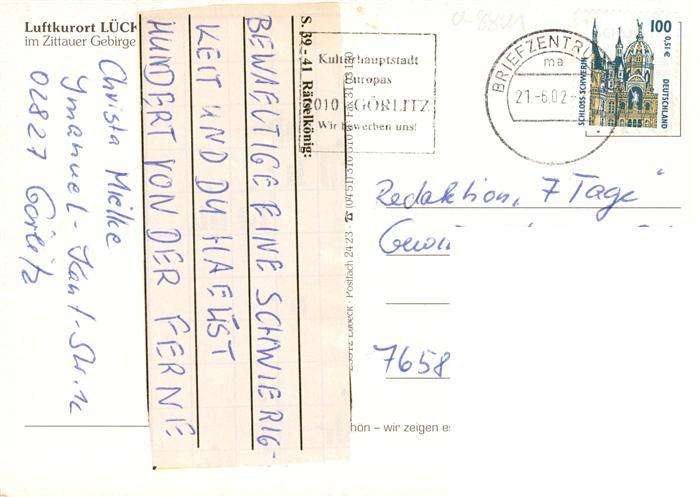 Luftkurort LÜCK
im Zittauer Gebirge
Christa Mielke
Ymanuel-Kant-Str. 12
02827 Görlitz
S. 39 - 41 Rätselkönig:
BEWAELTIGE EINE SCHWIERIG-
KEIT UND DU HAELST
HUNDERT VON DER FERNE
Kulturhauptstadt
Europas
2010 GÖRLITZ
Wir bewerben uns!
BRIEFZENTR
ma
21.-6.02.-
100
0,51€
SCHLOSS SCHWERIN
DEUTSCHLAND
Redaktion „7 Tage"
7658
Lübeck · Postfach 24 23 ·
hön – wir zeigen es